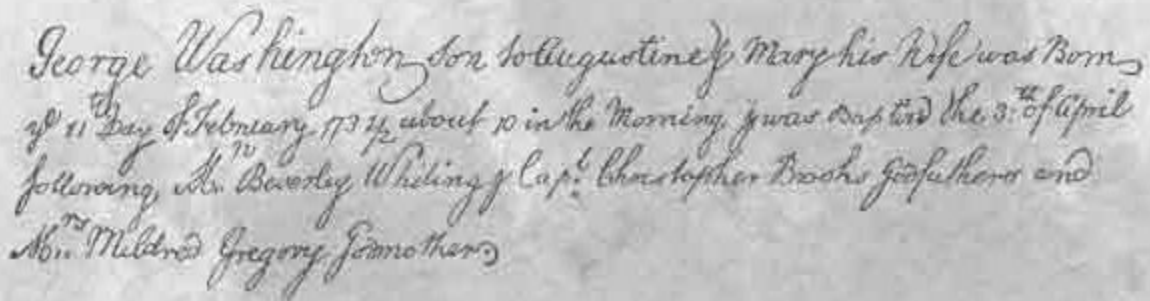 George Washington Son to Augustine & Mary his Wife was Born
ye 11th Day of February 1731/2 about 10 in the Morning & was Baptiz'd the 3th of April
following Mr Beverley Whiting & Capt Christopher Brooks Godfathers and
Mrs Mildred Gregory Godmother